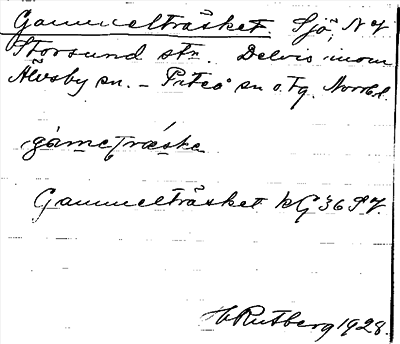 Gammelträsket Sjö, N 7
Storsund stn. Delvis inom
Älvsby sn. – Piteå sn o. Tg. Norrb. l.
gámeᶅtræska
Gammelträsket kG 36 S 7.
H Rutberg 1928.